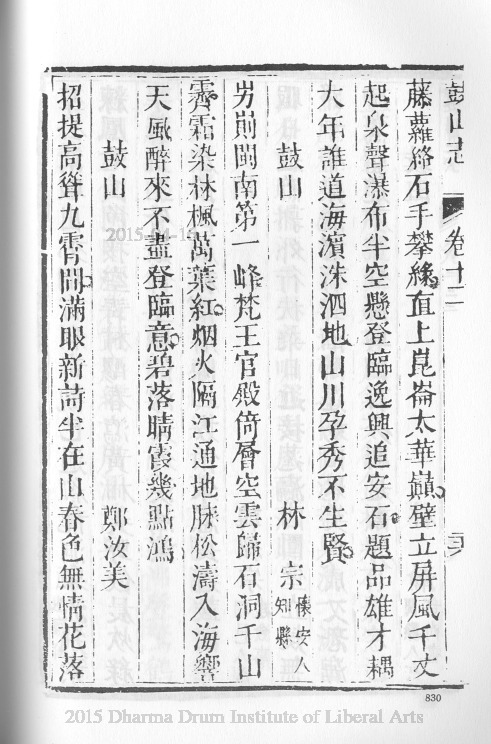 鼓山志 卷十二
藤蘿絡石手攀緣直上崑崙太華巔壁立屏風千丈
起泉聲瀑布半空懸登臨逸興追安石題品雄才耦
大年誰道海濱洙泗地山川孕秀不生賢
鼓山 林宗 懷安人知縣
屴崱閩南第一峰梵王官殿倚層空雲歸石洞千山
霽霜染林楓萬葉紅烟火隔江通地脉松濤入海響
天風醉來不盡登臨意碧落晴霞幾點鴻
鼓山 鄭汝美
招提高聳九霄間滿眼新詩半在山春色無情花落
830
2015 Dharma Drum Institute of Liberal Arts